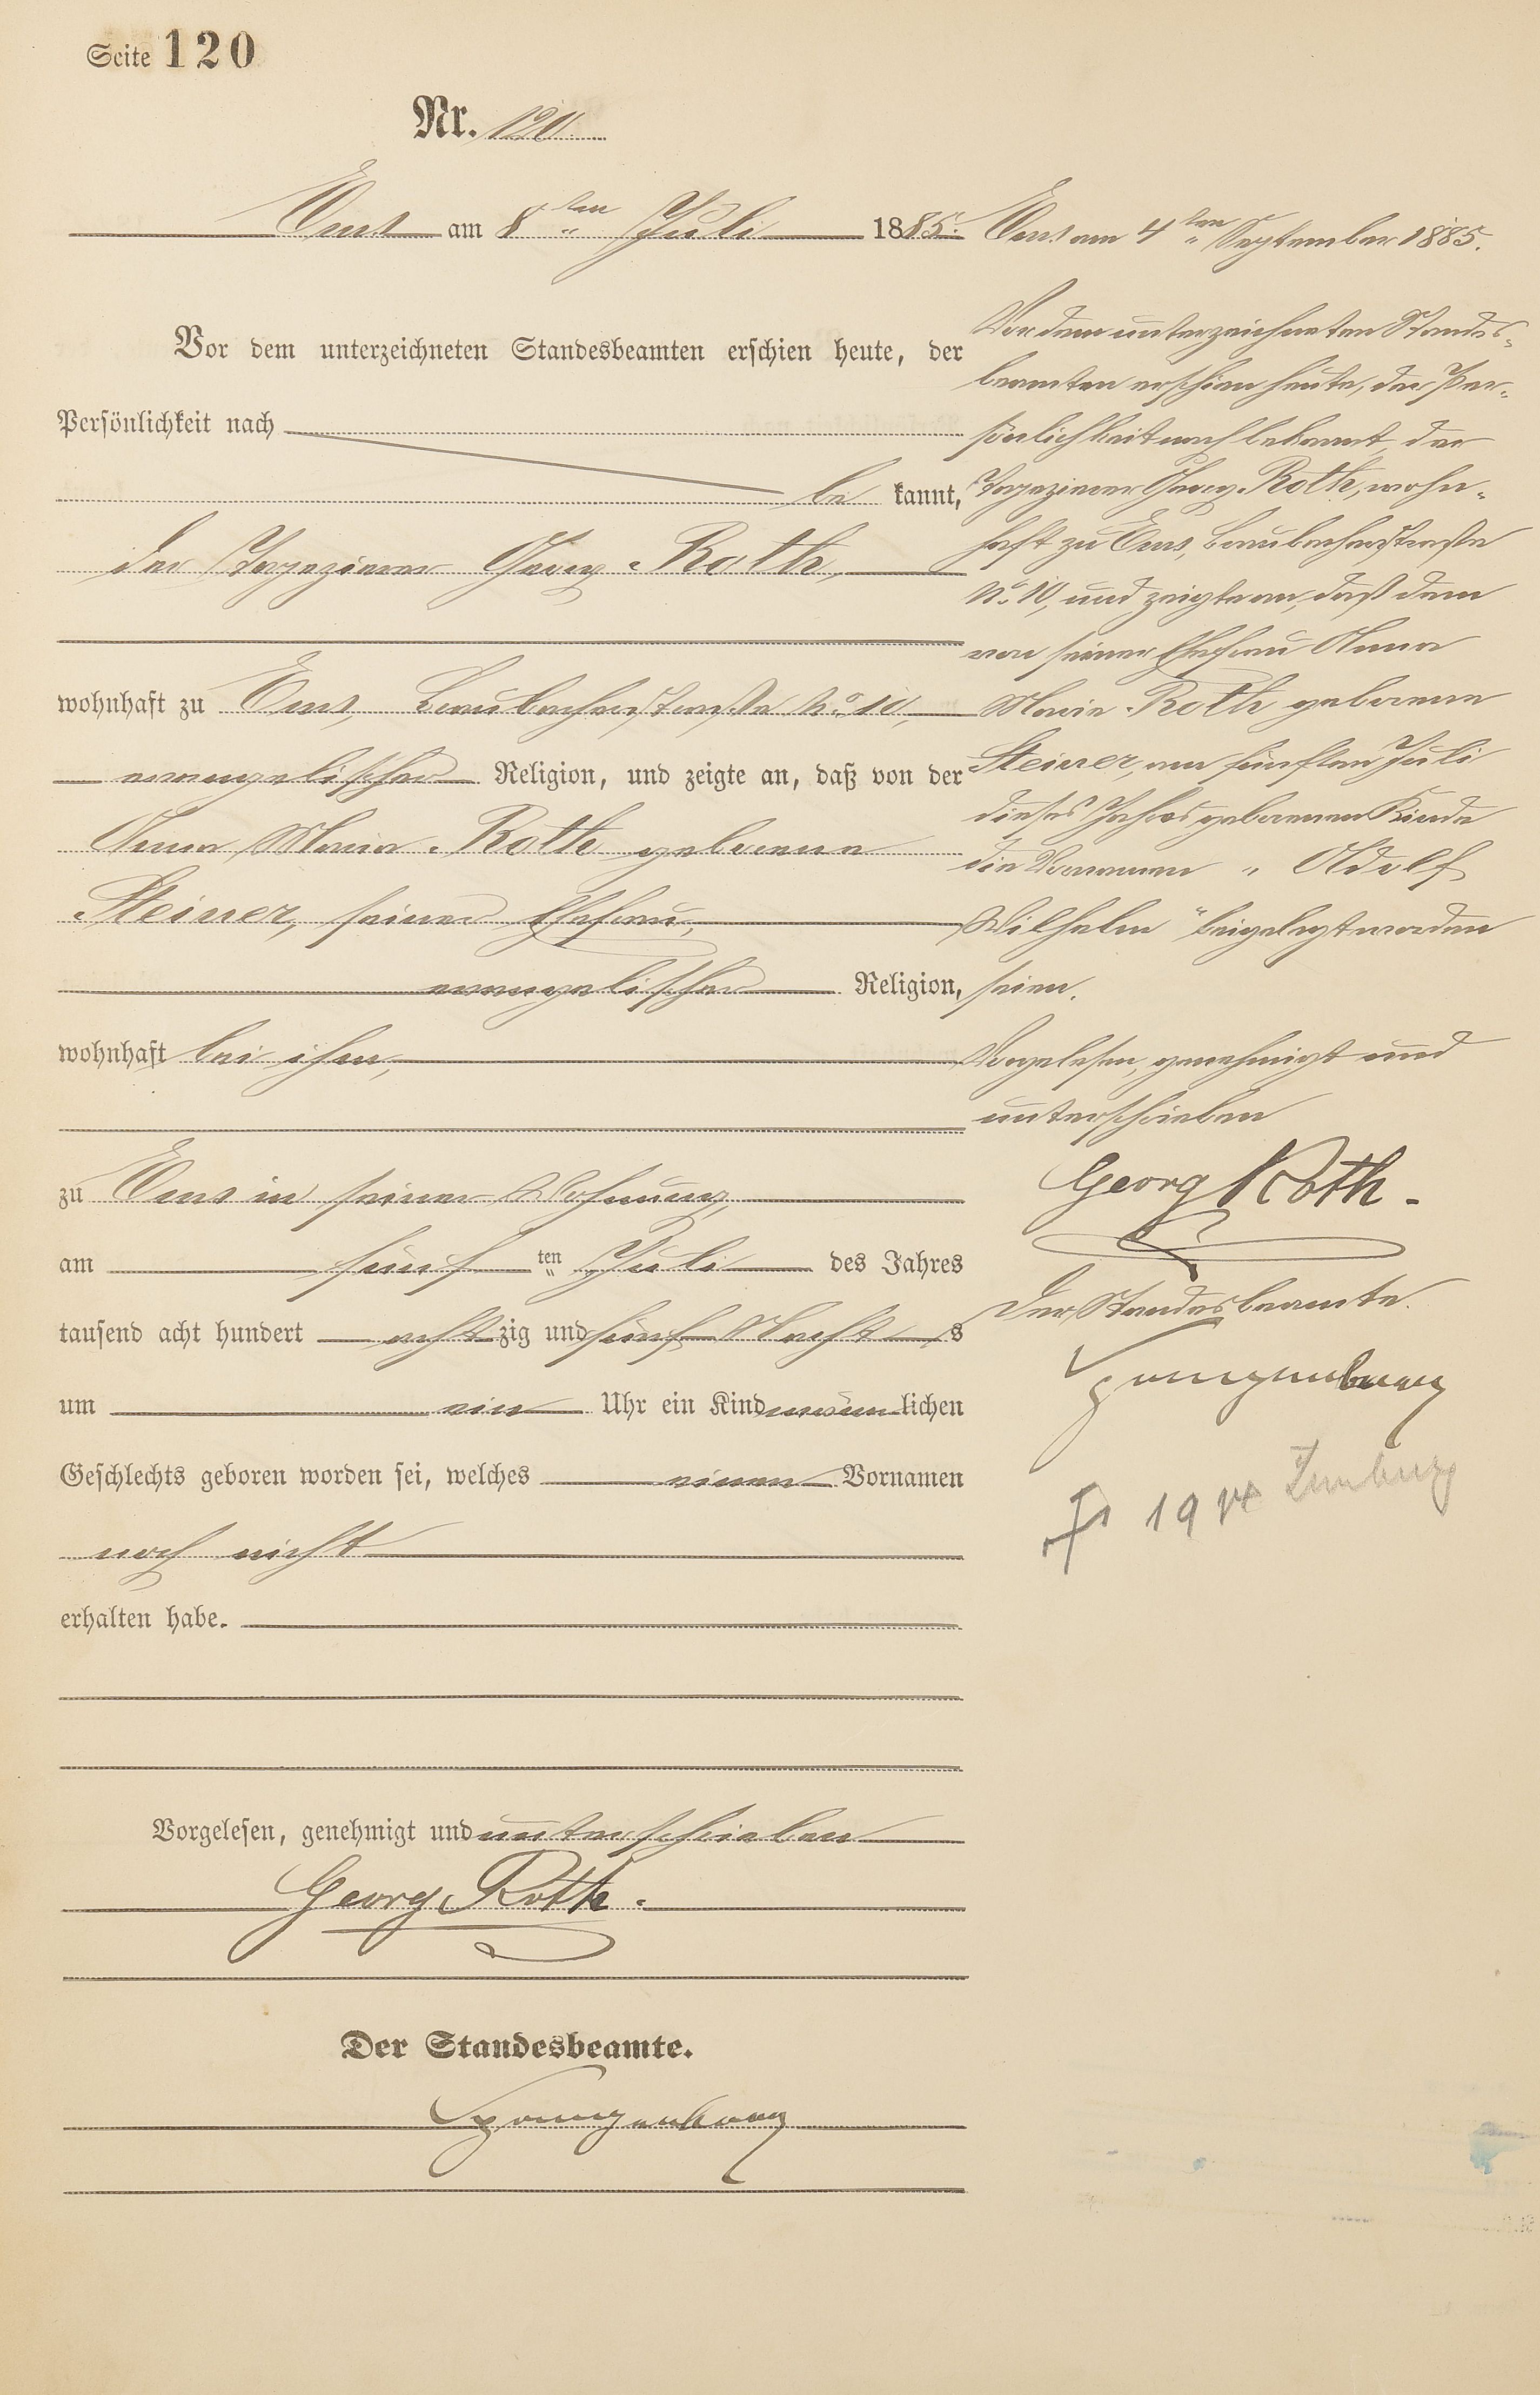 Seite 120
Nr. 120.
Ems am 8ten Juli 1885.
Vor dem unterzeichneten Standesbeamten erschien heute, der
Persönlichkeit nach
be kannt,
der Tapezierer Georg Roth,
wohnhaft zu Ems, Braubacherstraße No. 10,
evangelischer Religion, und zeigte an, daß von der
Anna Maria Roth geborene
Steiner, seiner Ehefrau,
evangelischer Religion,
wohnhaft bei ihm,
zu Ems in seiner Wohnung,
am fünf ten Juli des Jahres
tausend acht hundert acht zig und fünf Nacht s
um ein Uhr ein Kind männ lichen
Geschlechts geboren worden sei, welches einen Vornamen
noch nicht
erhalten habe.
Vorgelesen, genehmigt und unterschrieben
Georg Roth.
Der Standesbeamte.
Ems am 4ten September 1885.
Vor dem unterzeichneten Standes-
beamten erschien heute, der Per-
sönlichkeit nach bekannt, der
Tapezierer Georg Roth, wohn-
haft zu Ems, Braubacherstraße
No. 10, und zeigte an, daß dem
von seiner Ehefrau Anna
Maria Roth geborene
Steiner, am fünften Juli
dieses Jahres geborenen Kinde
die Vornamen „Adolf
Wilhelm“ beigelegt worden
seien.
Vorgelesen, genehmigt und
unterschrieben
Georg Roth.
Der Standesbeamte.
19 Limburg